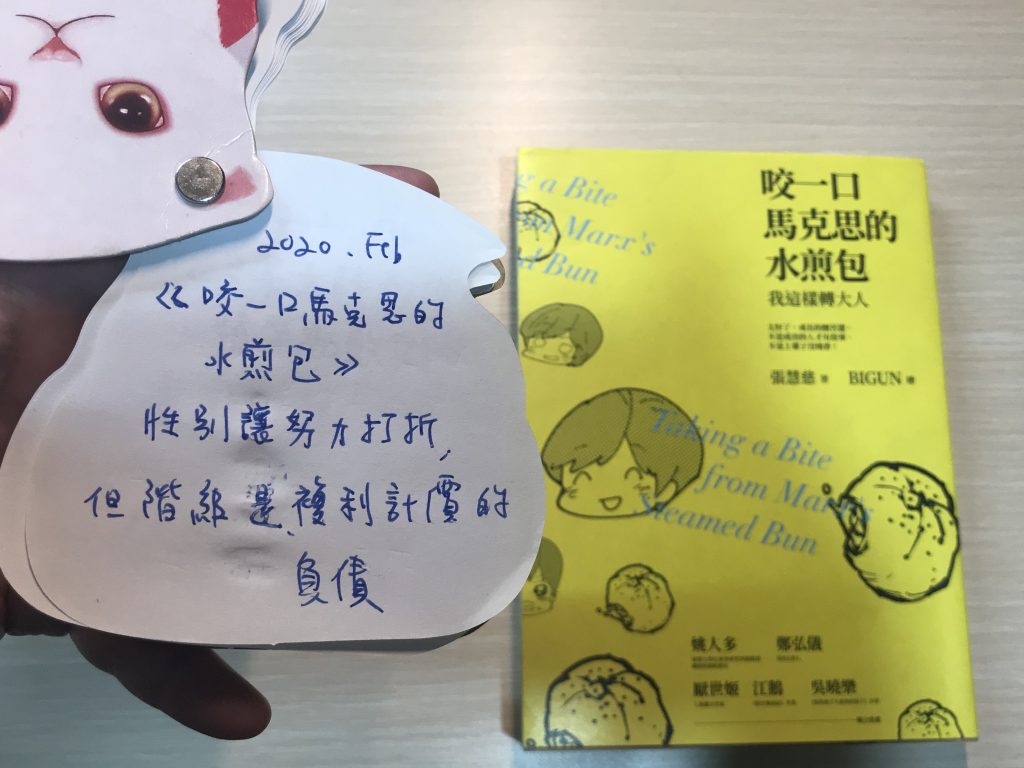 2020. Feb
《咬一口馬克思的
水煎包》
性別讓努力打折,
但階級還複利計價的
負債
咬一口
馬克思的
水煎包
我這樣轉大人
張慧慈 著 BIGUN 繪
g a Bite
om Marx's
d Bun
Taking a Bite
from Marx's
Steamed Bun
姚人多 鄭弘儀
厭世姬 江鵝 吳曉樂